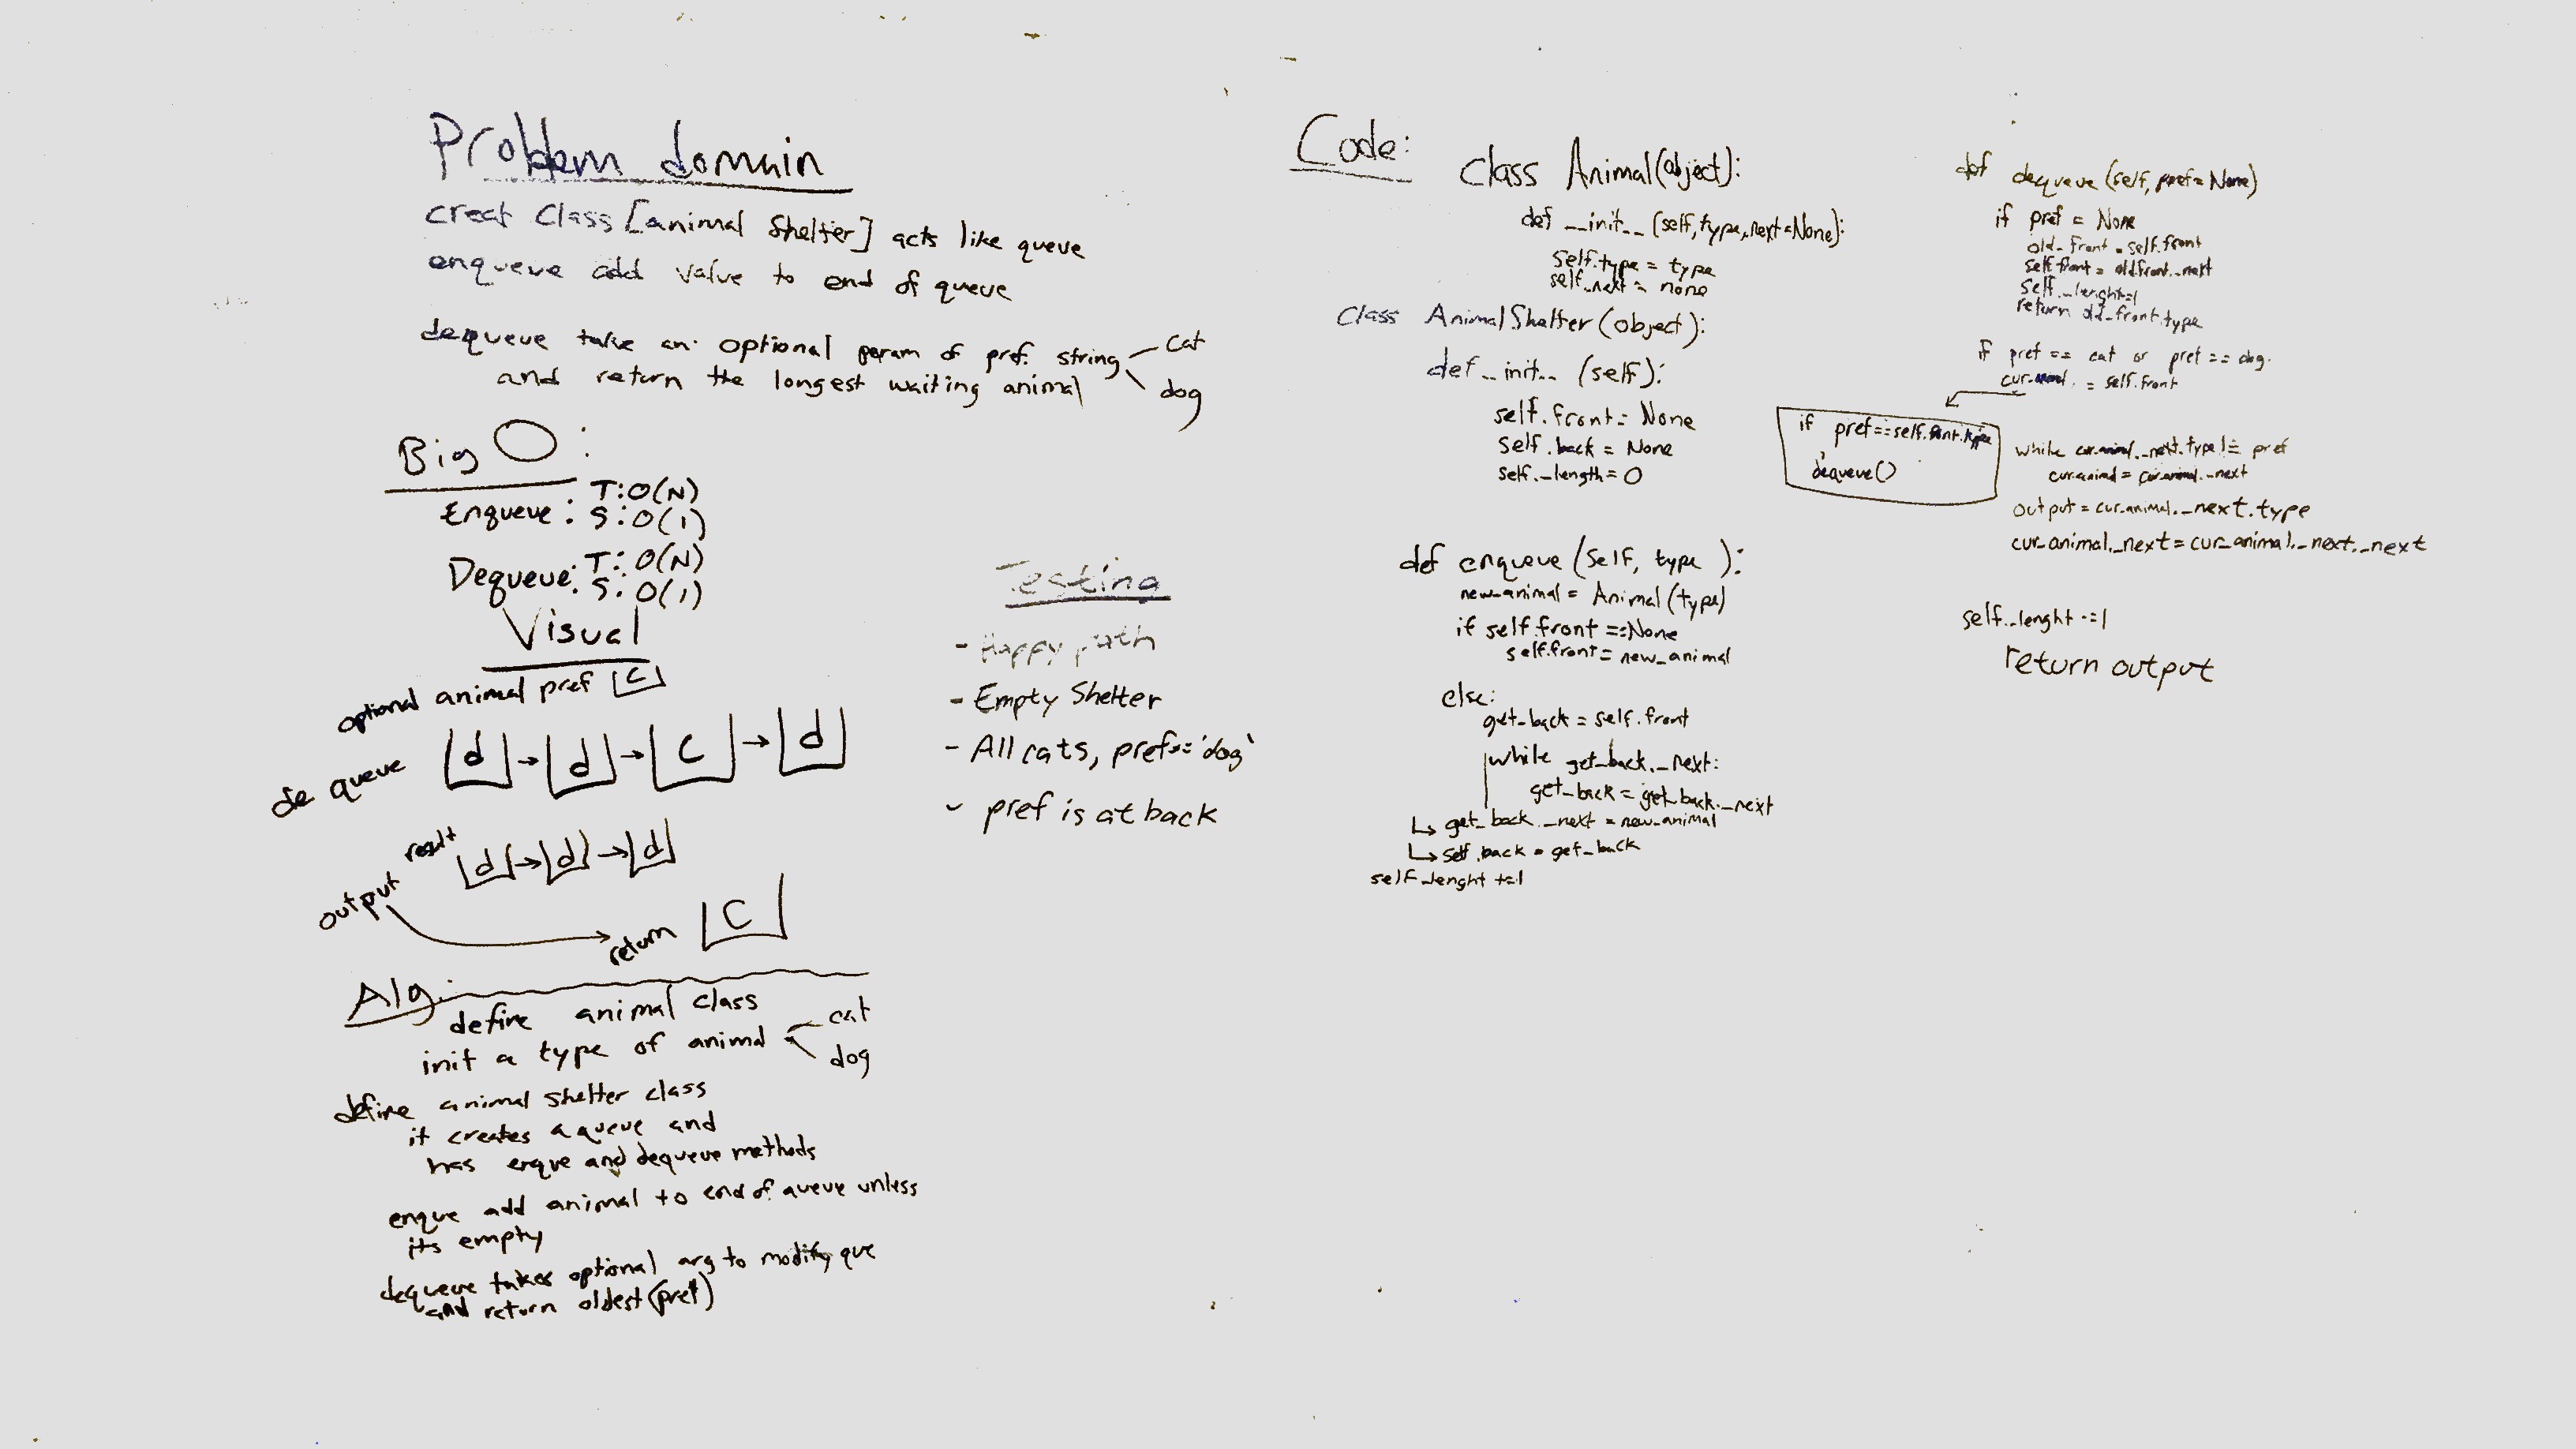 Problem domain
creat Class [animal Shelter] acts like queue
enqueue add value to end of queue
dequeue take an optional param of pref. string
cat
dog
and return the longest waiting animal
Big O:
Enqueue: T:O(N)
S:O(1)
Dequeue: T:O(N)
S:O(1)
Visual
optional animal pref C
de queue d → d → C → d
result d → d → d
output
return C
Alg:
define animal class
init a type of animal
cat
dog
define animal shelter class
it creates a queue and
has enque and dequeue methods
enque add animal to end of queue unless
its empty
dequeue takes optional arg to modify que
and return oldest (pref)
Testing
- Happy path
- Empty Shelter
- All cats, pref == 'dog'
- pref is at back
Code:
Class Animal(object):
def __init__ (self, type, next=None):
self.type = type
self._next = none
Class AnimalShelter (object):
def __init__ (self):
self.front = None
self.back = None
self._length = 0
def enqueue (self, type ):
new_animal = Animal (type)
if self.front == None
self.front = new_animal
else:
get_back = self.front
while get_back._next:
get_back = get_back._next
↳ get_back._next = new_animal
↳ self.back = get_back
self._lenght +=1
def dequeue (self, pref=None)
if pref = None
old_front = self.front
self.front = old.front._next
self._lenght-=1
return old_front.type
if pref == cat or pref == dog.
cur.animal. = self.front
if pref==self.front.type
dequeue()
while cur.animal._next.type != pref
cur.animal = cur.animal._next
output = cur.animal._next.type
cur_animal._next = cur_animal._next._next
self._lenght -=1
return output